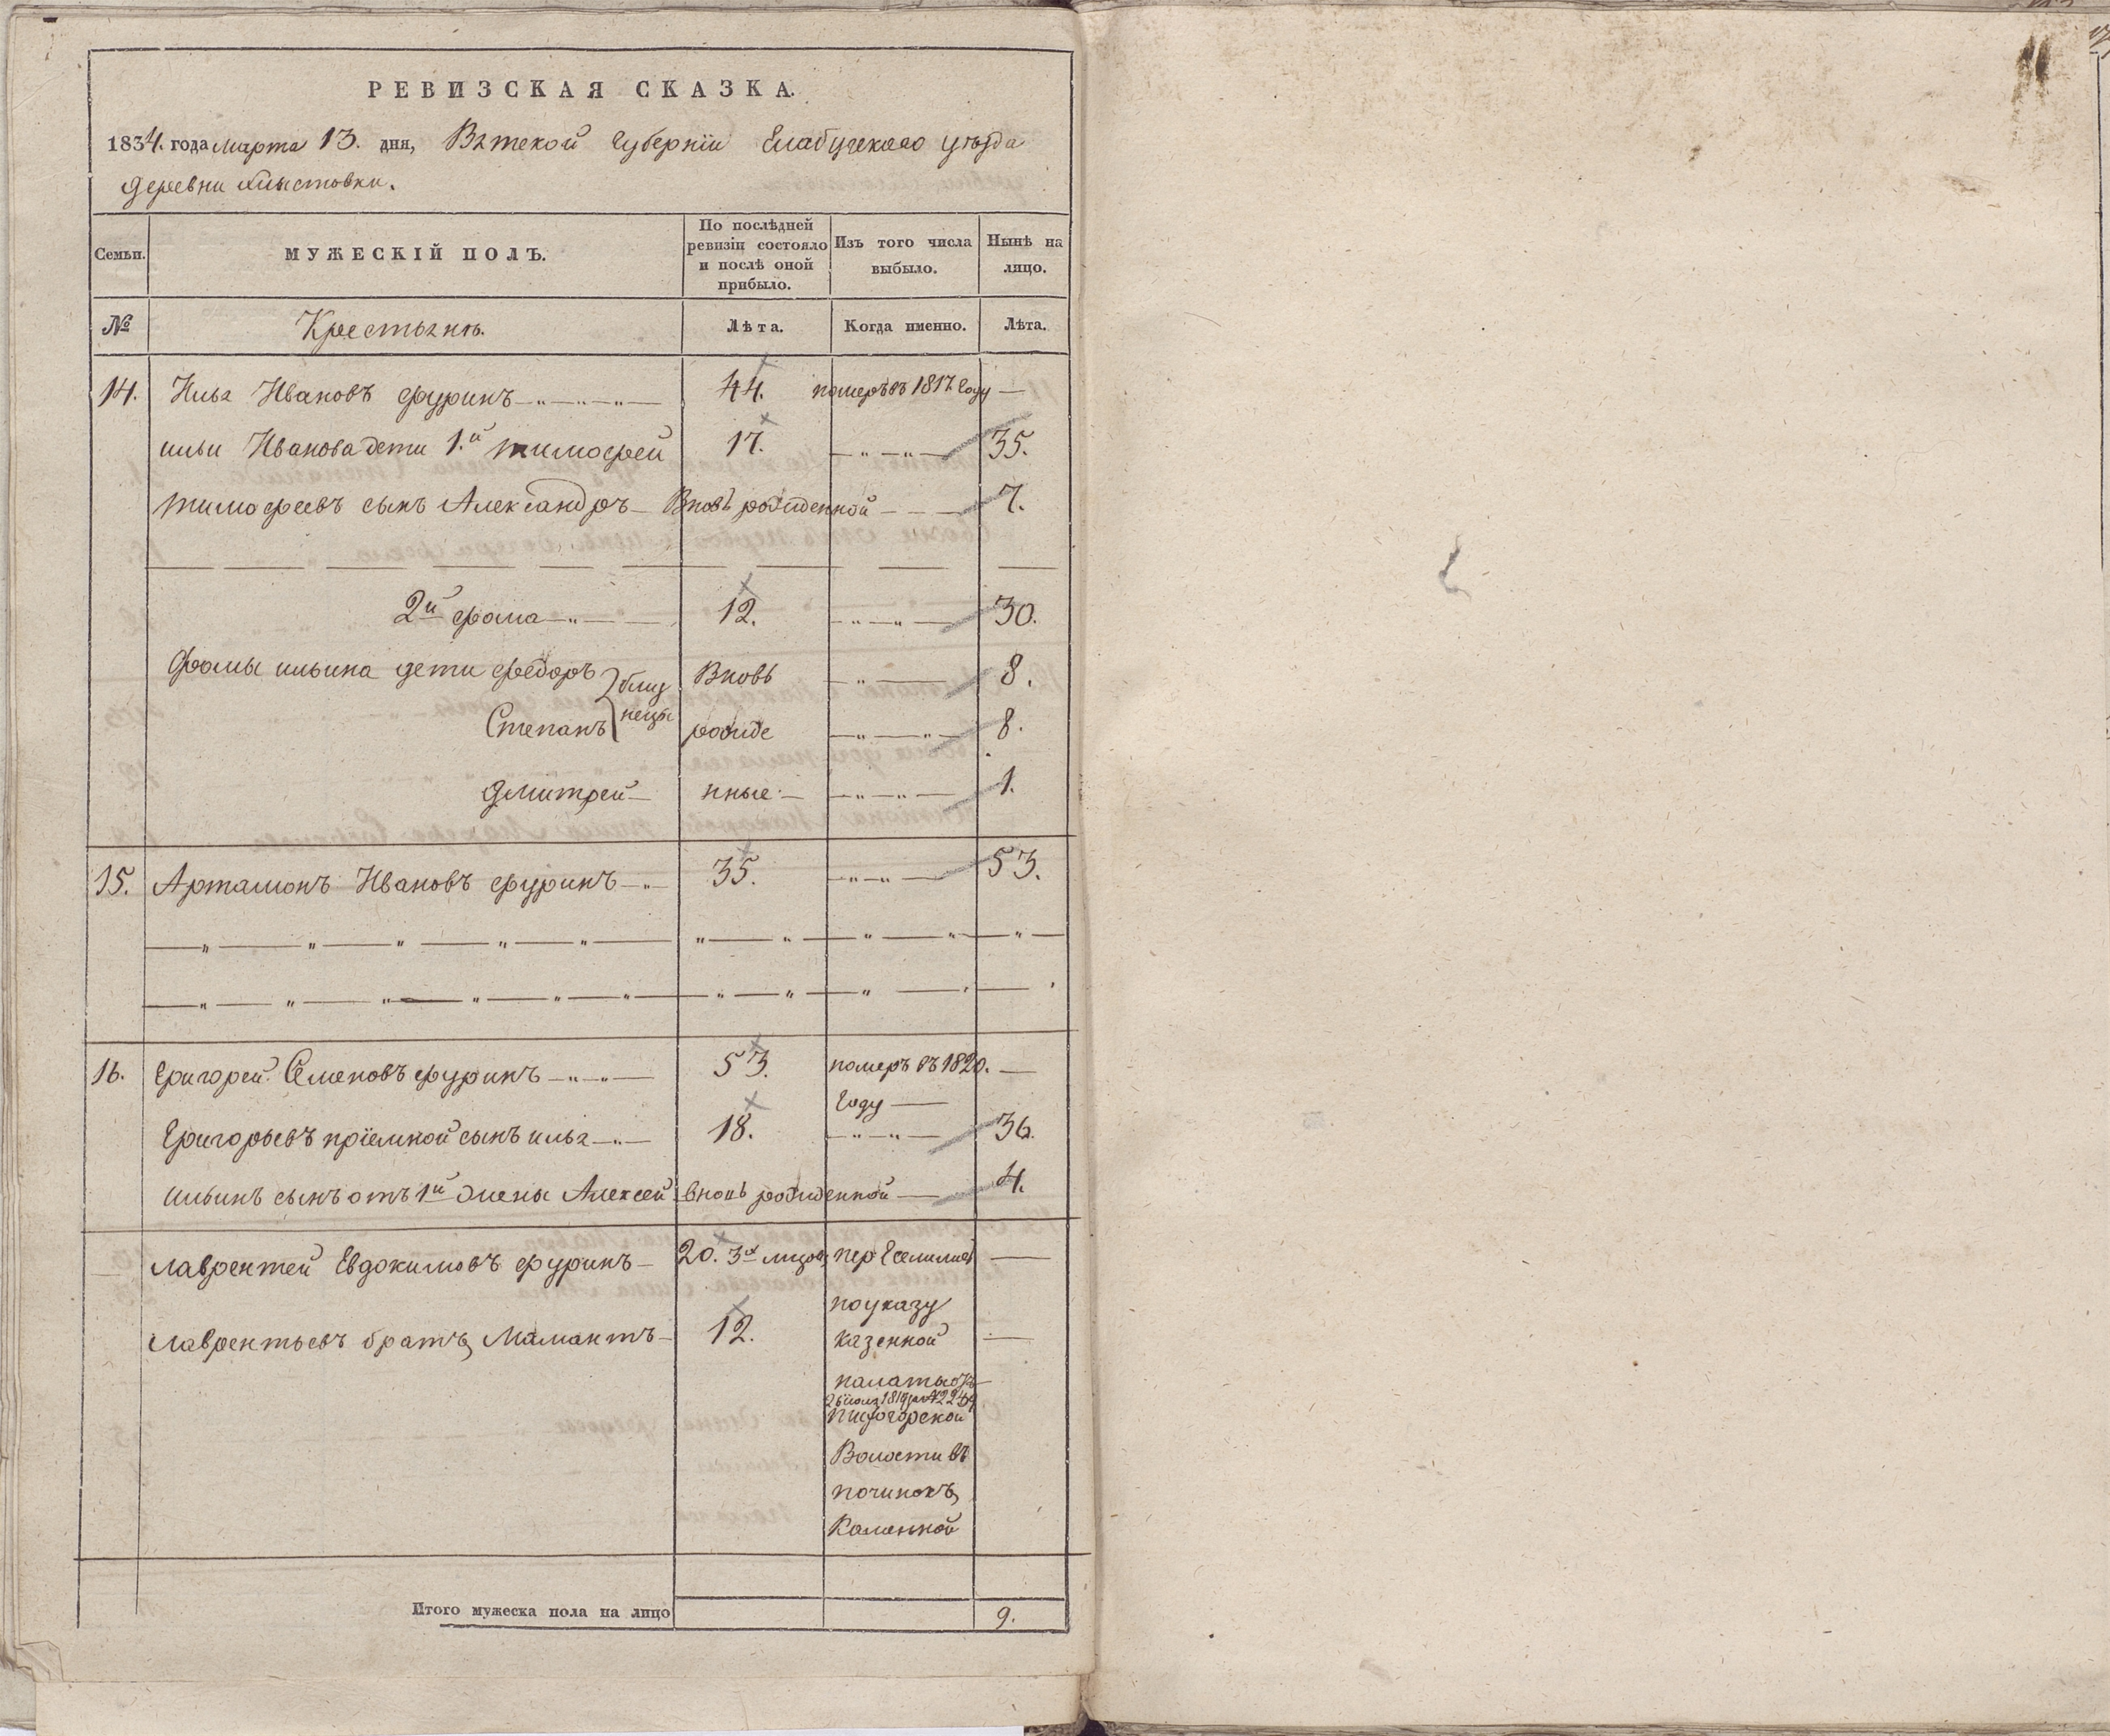 РЕВИЗСКАЯ СКАЗКА.
1834. года Марта 13. дня, Вятской Губернїи Елабужскаго уѣзда
деревни
Семьи. МУЖЕСКІЙ ПОЛЪ. По послѣдней ревизіи состояло и послѣ оной прибыло. Изъ того числа выбыло. Нынѣ на лицо.
№ Крестьянѣ. Лѣта. Когда именно. Лѣта.
14. Илья Ивановъ Фуринъ 44. померъ въ 1817. году —
ильи Иванова дети 1.й тимофей 17. 35.
тимофеевъ сынъ Александръ Вновь рожденной 7.
2й фома 12. 30.
Фомы ильина дети федоръ близ Вновь 8.
Степанъ нецы рожде 8.
дмитрей нные 1.
15. Артамонъ Ивановъ фуринъ 35. 53.
16. Григорей Семеновъ фуринъ 53. померъ въ 1820. —
году
Григорьевъ прїемной сынъ илья 18. 36.
ильинъ сынъ отъ 1й жены Алексей вновь рожденной 4.
лаврентей Евдокимовъ фуринъ 20. 3х —
по указу
лаврентьевъ братъ Мамантъ 12. казенной —
палаты отъ
Волости въ
починокъ
Каменной
Итого мужеска пола на лицо 9.